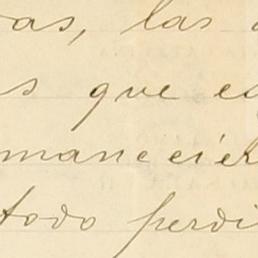 as, las
s que es
manecier
todo perdi